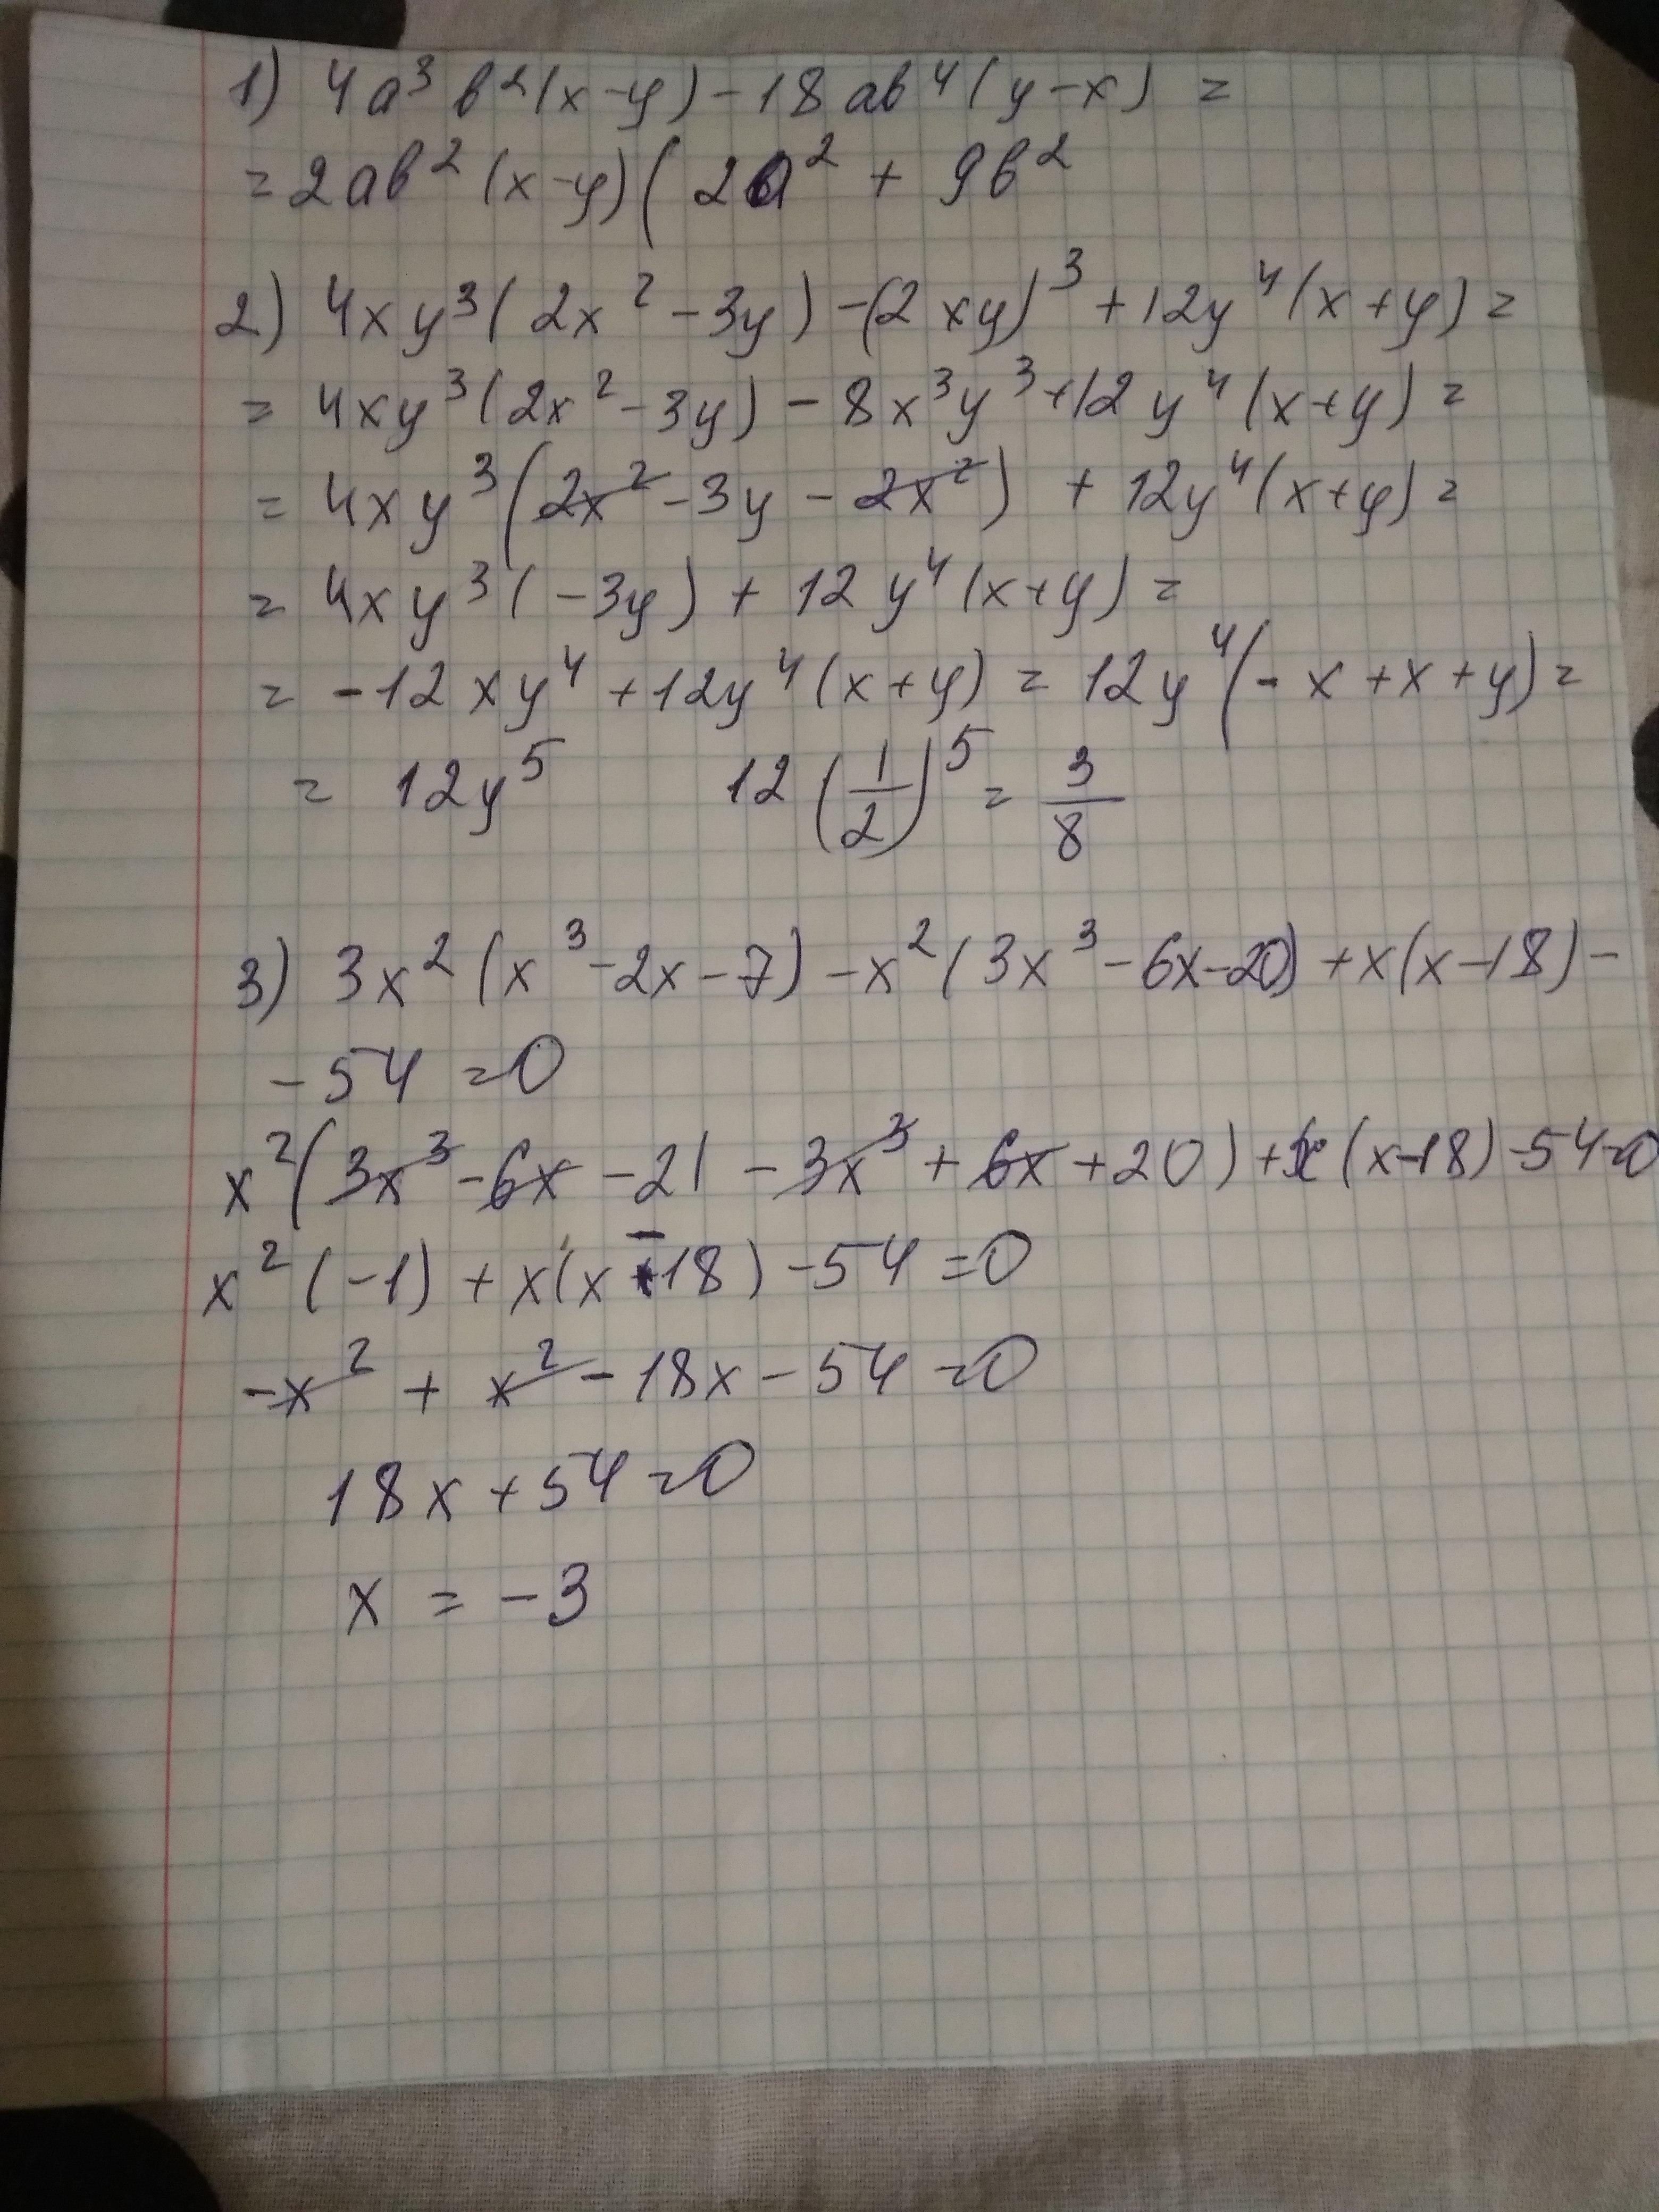 1) 4a³b²(x-y)-18ab⁴(y-x) =
= 2ab²(x-y)(2a² + 9b²
2) 4xy³(2x²-3y)-(2xy)³+12y⁴(x+y) =
= 4xy³(2x²-3y)-8x³y³+12y⁴(x+y) =
= 4xy³(2x²-3y-2x²) + 12y⁴(x+y) =
= 4xy³(-3y) + 12y⁴(x+y) =
= -12xy⁴+12y⁴(x+y) = 12y⁴(-x+x+y) =
= 12y⁵ 12(1/2)⁵ = 3/8
3) 3x²(x³-2x-7)-x²(3x³-6x-20)+x(x-18)-
-54=0
x²(3x³-6x-21-3x³+6x+20)+x(x-18)-54=0
x²(-1)+x(x-18)-54=0
-x²+x²-18x-54=0
18x+54=0
x = -3